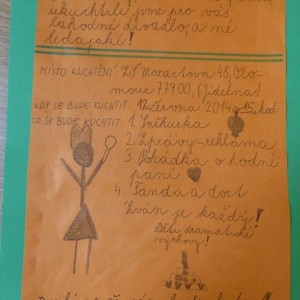 ukuchtili jsme pro vás
lahodné divadlo, a né
ledajaké!
MÍSTO KUCHTĚNÍ ZŠ Mozartova 48, Olo-
mouc 779 00, (Jídelna)
KDY SE BUDE KUCHTIT: 12. června 2014 v 15. hod
CO SE BUDE KUCHTIT: 1. Sněhurka
2. Zprávy-reklama
3. Pohádka o hodné
paní
4. Fanda a dort
Zván je každý!
Děti dramatické
výchovy!